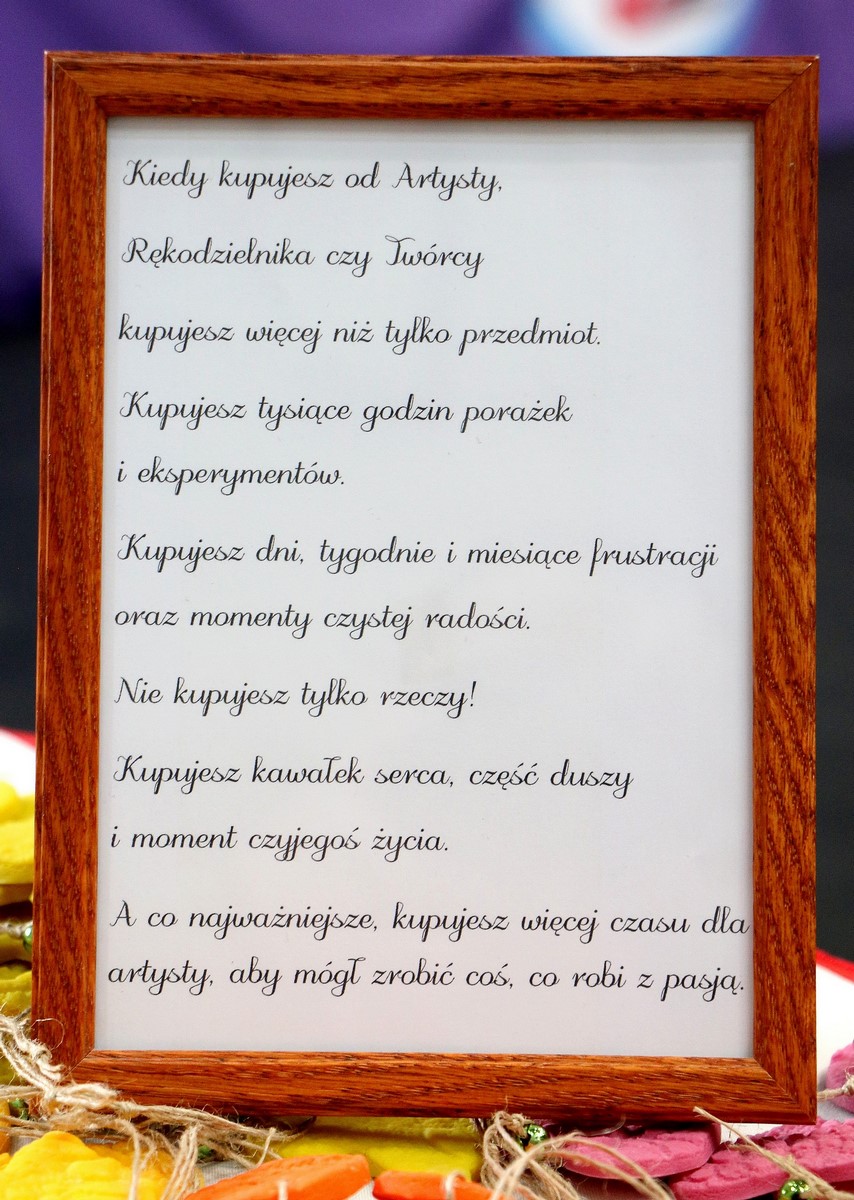 Kiedy kupujesz od Artysty,
Rękodzielnika czy Twórcy
kupujesz więcej niż tylko przedmiot.
Kupujesz tysiące godzin porażek
i eksperymentów.
Kupujesz dni, tygodnie i miesiące frustracji
oraz momenty czystej radości.
Nie kupujesz tylko rzeczy!
Kupujesz kawałek serca, część duszy
i moment czyjegoś życia.
A co najważniejsze, kupujesz więcej czasu dla
artysty, aby mógł zrobić coś, co robi z pasją.